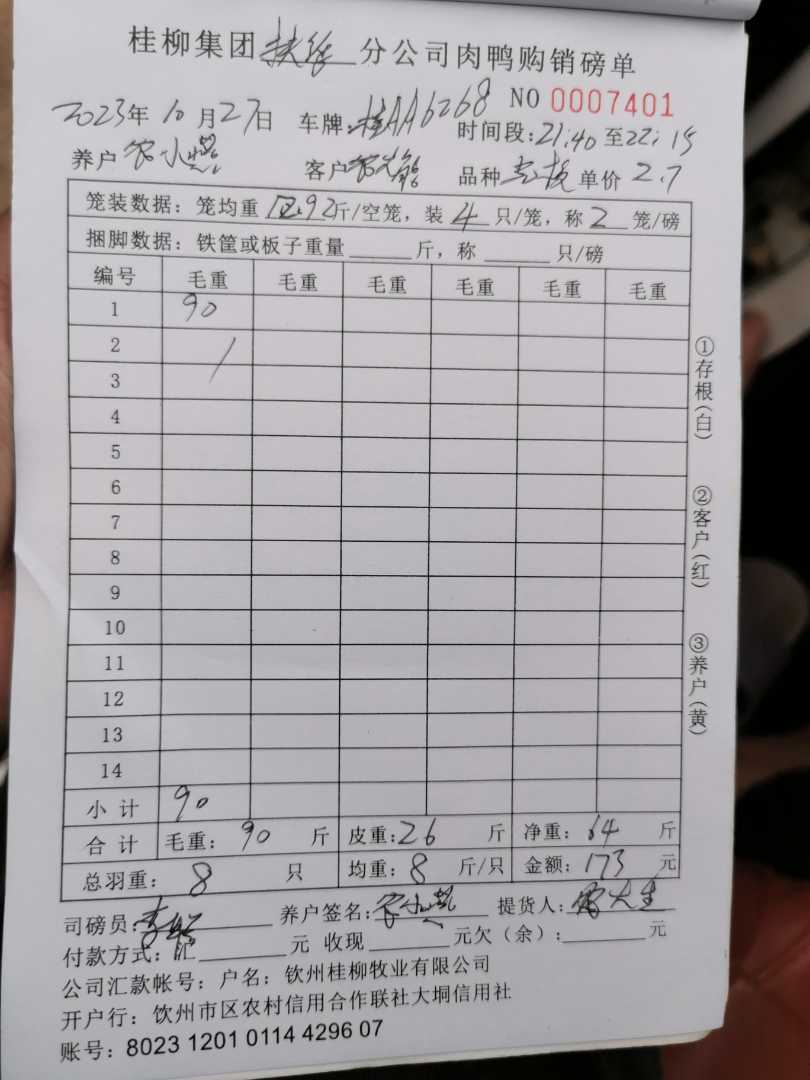 桂柳集团扶绥分公司肉鸭购销磅单
NO 0007401
2023年10月27日 车牌:桂AA6268 时间段:21:40至22:15
养户 农小燕 客户 品种 单价 2.7
笼装数据: 笼均重 .92斤/空笼, 装 4 只/笼, 称 2 笼/磅
捆脚数据: 铁筐或板子重量______斤, 称______只/磅
编号 毛重 毛重 毛重 毛重 毛重 毛重
1 90
2 /
3
4
5
6
7
8
9
10
11
12
13
14
小计 90
合计 毛重: 90 斤 皮重: 26 斤 净重: 64 斤
总羽重: 8 只 均重: 8 斤/只 金额: 173 元
司磅员: 李 养户签名: 农小燕 提货人:
付款方式: 汇______元 收现______元欠(余):______元
公司汇款帐号: 户名: 钦州桂柳牧业有限公司
开户行: 钦州市区农村信用合作联社大垌信用社
账号: 8023 1201 0114 4296 07
①存根(白)
②客户(红)
③养户(黄)